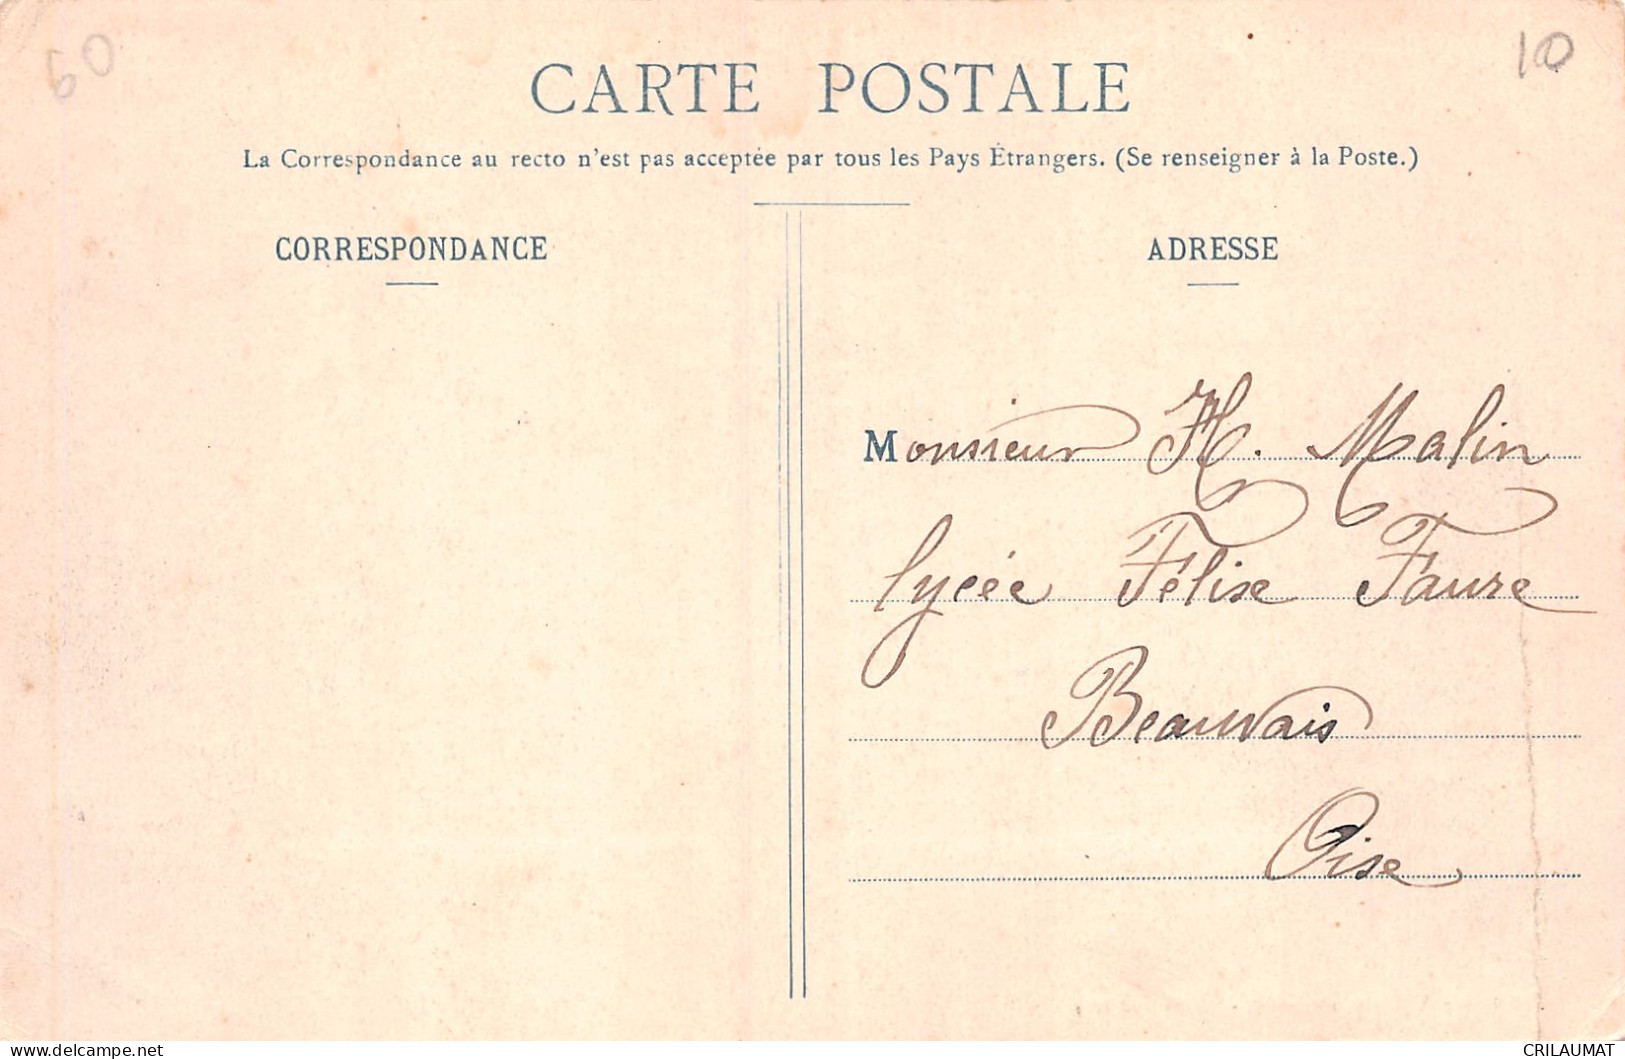 60
10
CARTE POSTALE
La Correspondance au recto n'est pas acceptée par tous les Pays Étrangers. (Se renseigner à la Poste.)
CORRESPONDANCE
ADRESSE
Monsieur H. Malin
lycée Félixe Faure
Beauvais
Oise
delcampe.net
CRILAUMAT